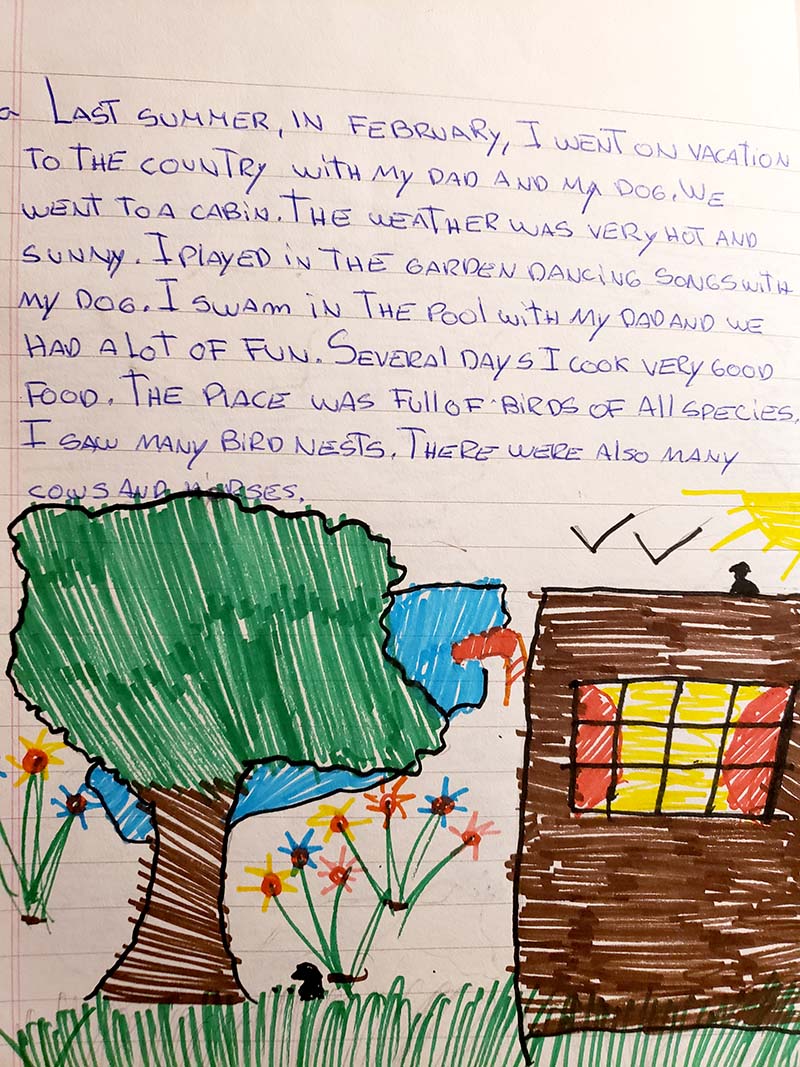 a LAST SUMMER, IN FEBRUARY, I WENT ON VACATION
TO THE COUNTRY WITH MY DAD AND MY DOG. WE
WENT TO A CABIN. THE WEATHER WAS VERY HOT AND
SUNNY. I PLAYED IN THE GARDEN DANCING SONGS WITH
MY DOG. I SWAM IN THE POOL WITH MY DAD AND WE
HAD A LOT OF FUN. SEVERAL DAYS I COOK VERY GOOD
FOOD. THE PLACE WAS FULL OF BIRDS OF ALL SPECIES.
I SAW MANY BIRD NESTS. THERE WERE ALSO MANY
COWS AND HORSES.